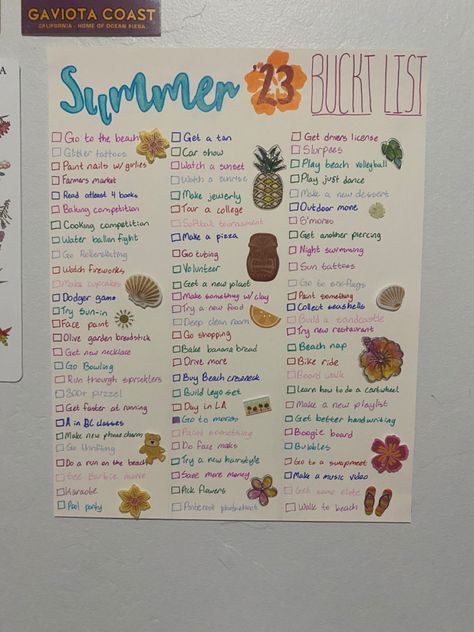 GAVIOTA COAST
CALIFORNIA - HOME OF OCEAN PIZZA
Summer '23 BUCKT LIST
Go to the beach
Glitter tattoos
Paint nails w/ girlies
Farmers market
Read atleast 4 books
Baking competition
Cooking competition
Water ballon fight
Go Rollerskating
Watch fireworks
Make cupcakes
Dodger game
Try sun-in
Face paint
Olive garden breadstick
Get new necklace
Go Bowling
Run through sprinklers
300+ puzzel
Get faster at running
A in BC classes
Make new phone charm
Go thrifting
Do a run on the beach
See Barbie movie
Karaoke
Pool party
Get a tan
Car show
Watch a sunset
Watch a sunrise
Make jewerly
Tour a college
Softball tournament
Make a pizza
Go tubing
Volunteer
Get a new plant
Make something w/ clay
Try a new food
Deep clean room
Go shopping
Bake banana bread
Drive more
Buy Beach crewneck
Build lego set
Day in LA
Go to
Paint something
Do face masks
Try a new hairstyle
Save more money
Pick flowers
Pinterest photoshoot
Get drivers license
Slurpees
Play beach volleyball
Play just dance
Make a new dessert
Outdoor movie
S'mores
Get another piercing
Night swimming
Sun tattoos
Go to six-flags
Paint something
Collect seashells
Build a sandcastle
Try new restaurant
Beach nap
Bike ride
Board walk
Learn how to do a cartwheel
Make a new playlist
Get better handwriting
Boogie board
Bubbles
Go to a swapmeet
Make a music video
Get some
Walk to beach